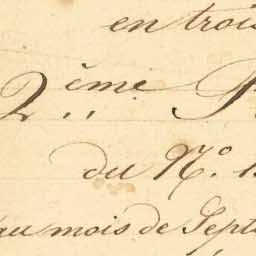 en trois
2.ème P
du N.º 1
au mois de Sept